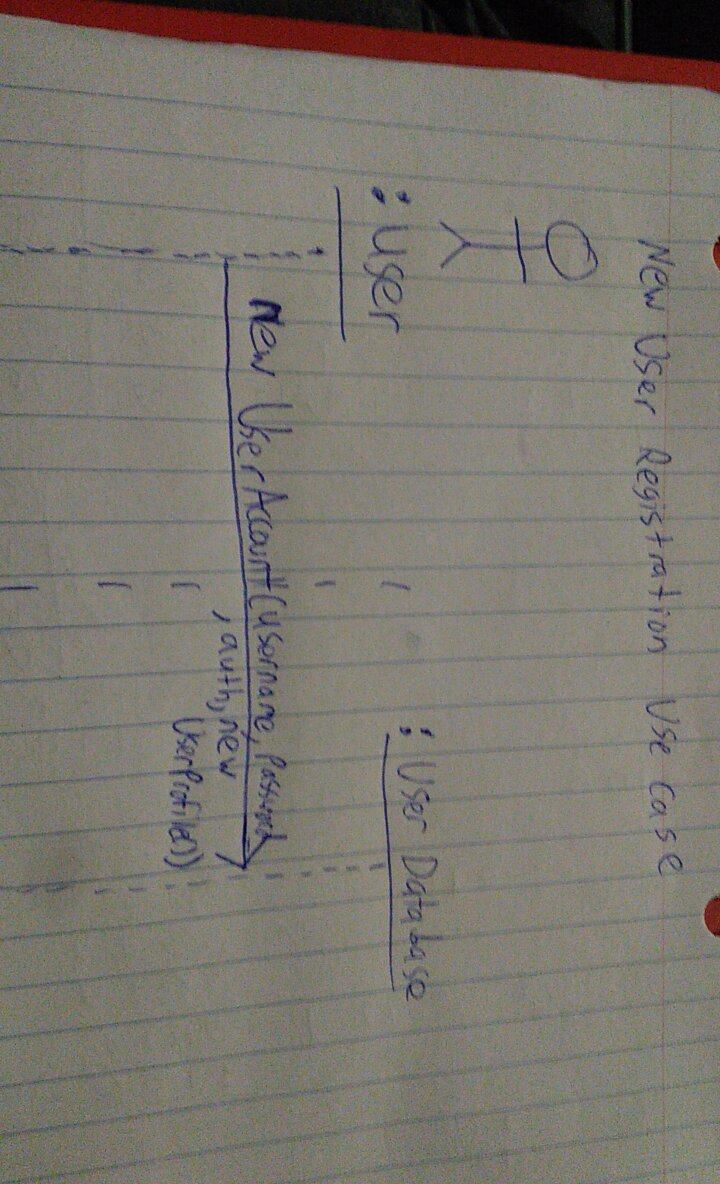 New User Registration Use Case
: User
: User Database
New UserAccount(username, password
, auth, new
UserProfile())